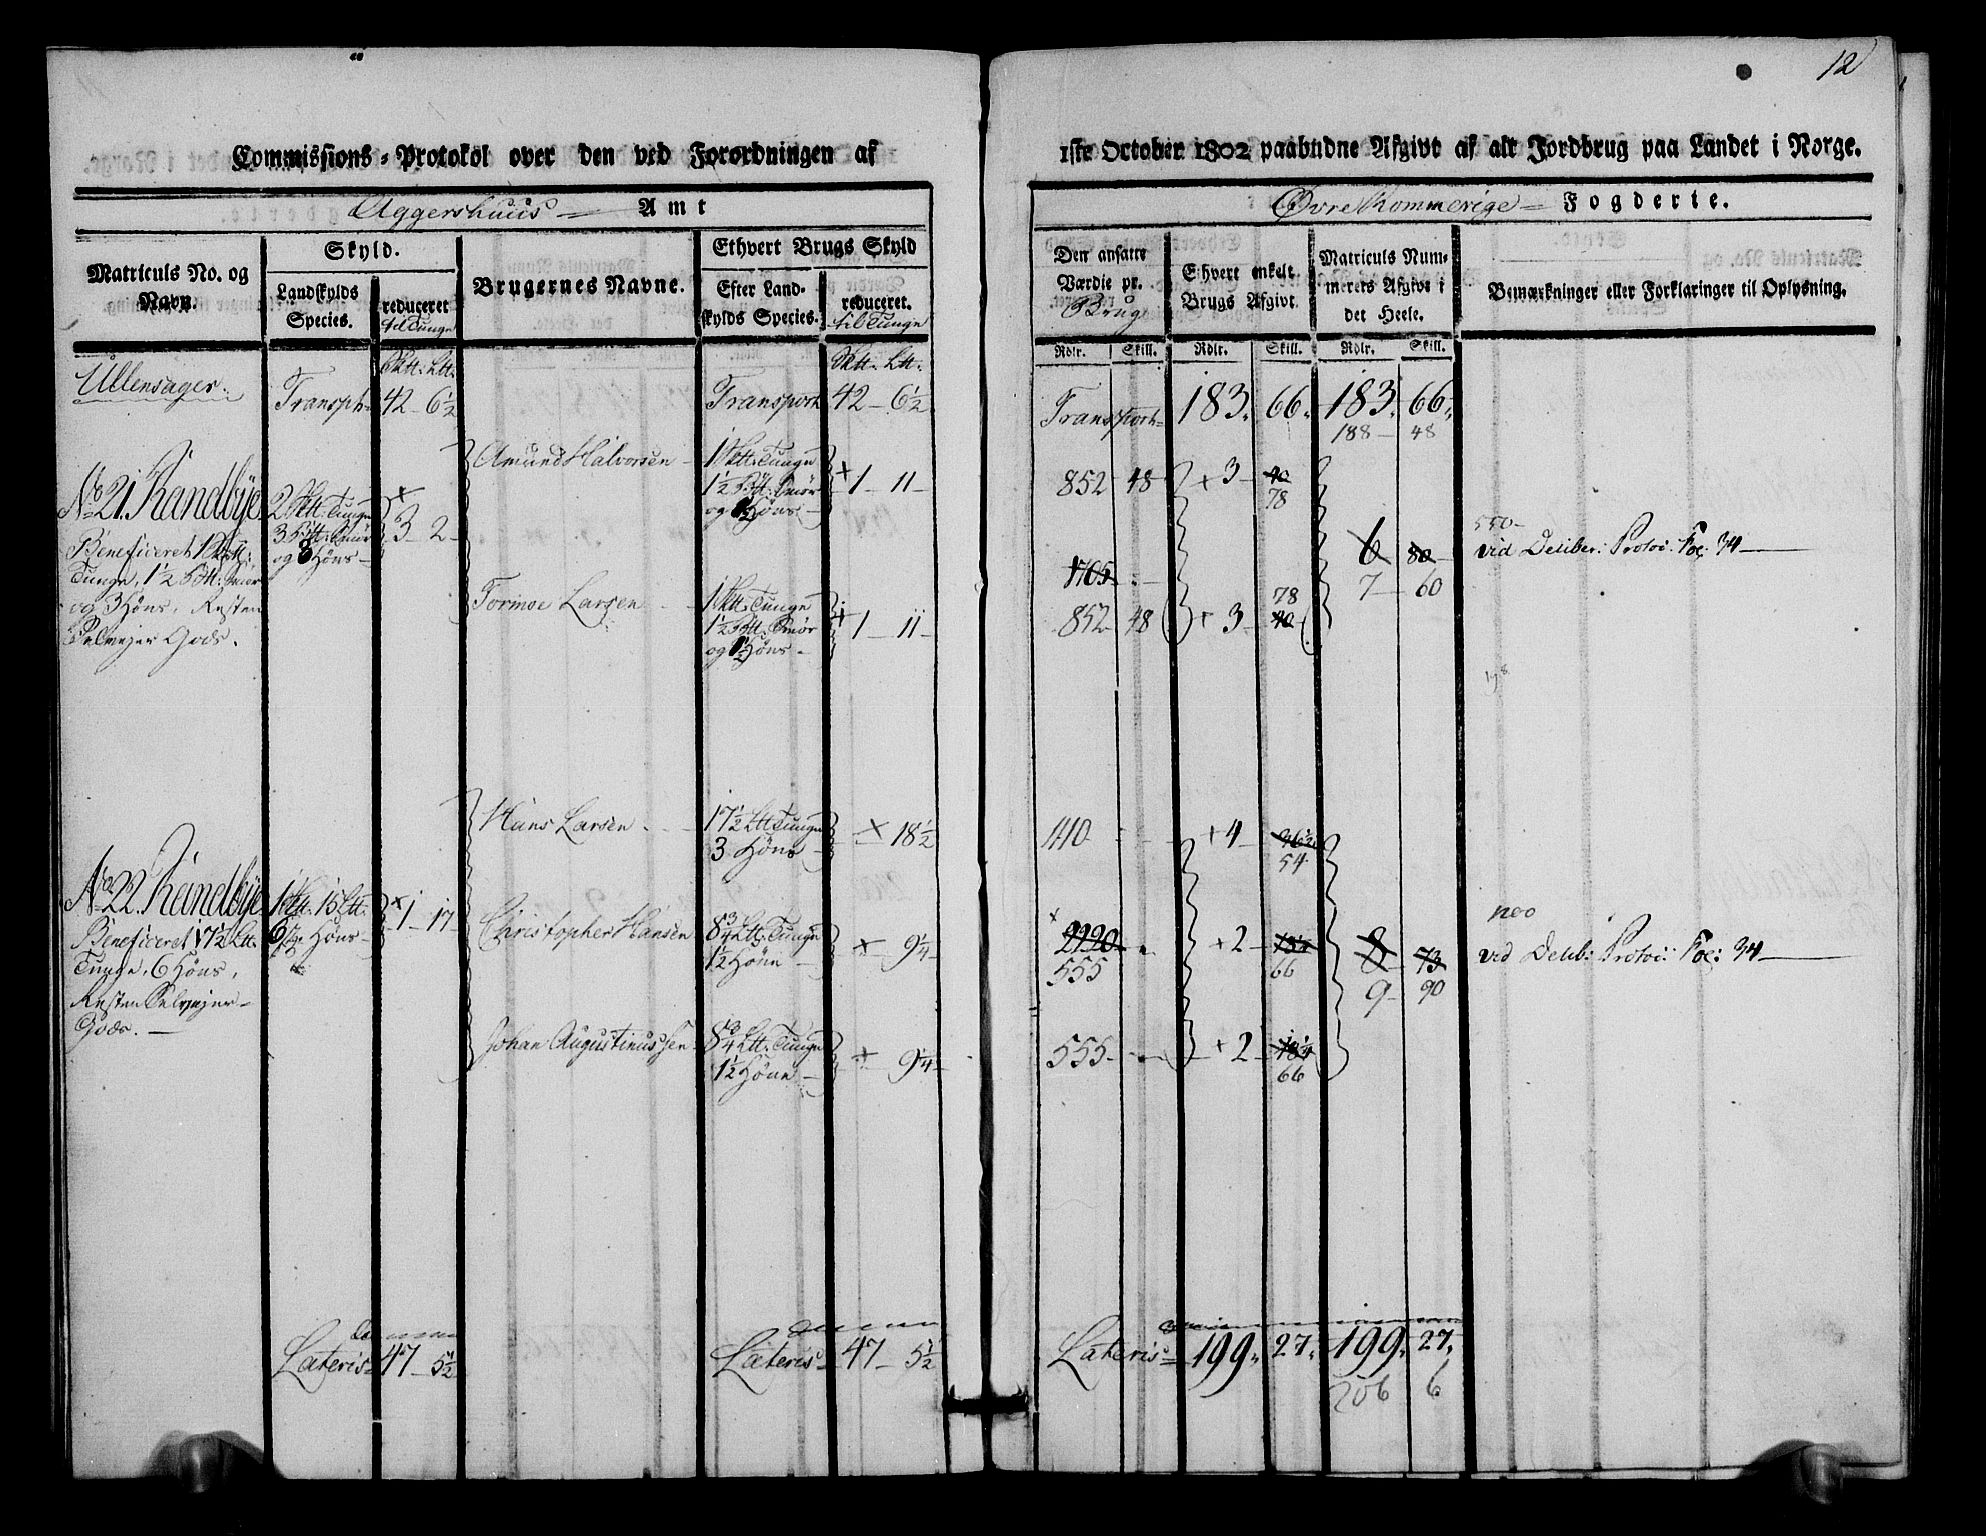 12
Commissions-Protokol over den ved Forordningen af
1ste October 1802 paabudne Afgivt af alt Jordbrug paa Landet i Norge.
Aggershuus Amt
Øvre Rommerige Fogderie.
Matriculs No. og Navn.
Skyld.
Landskylds Species.
reduceret til Tunge
Brugernes Navne.
Ethvert Brugs Skyld
Efter Landskylds Species.
reduceret. til Tunge
Den ansatte Værdie pr. Brug
Ethvert enkelt Brugs Afgivt.
Matriculs Nummerets Afgivt i det Heele.
Bemærkninger eller Forklaringer til Oplysning.
Rdlr. Skill. Rdlr. Skill. Rdlr. Skill.
Ullensager. Transpt 42 - 6½ Transport 42 - 6½
Transport 183. 66. 183. 66.
188 - 48
Amund Halvorsen 1 Skt. Tunge
1½ Bt. Smør
og 1½ Høns
+ 1 - 11 -
852 48 + 3 - 40
78
No 21. Randbye
2 Skt. Tunge
3 Bt. Smør
og 3 Høns
+ 3 - 2 -
Beneficeret 1 Skt.
Tunge, 1½ Bt. Smør
og 3 Høns, Resten
Selvejer Gods.
1705 -
6 80
7 - 60
550 -
vid Deliber: Protoc: Fol: 34
Tormoe Larsen 1 Skt. Tunge
1½ Bt. Smør
og 1½ Høns
+ 1 - 11 -
78
852 48 + 3 - 40
Hans Larsen 17½ Lt Tunge
3 Høns
+ 18½
1110 + 4 - 46½
54
No 22. Randbye
1 Skt. 15 Lt.
6 Høns
+ 1 - 17
Beneficeret 17½ Lt.
Tunge, 6 Høns,
Resten Selvejer
Gods.
Christopher Hansen 8¾ Lt. Tunge
1½ Høne
+ 9¼
2220
555
+ 2 - 73½
66
8 73
9 - 90
vid Delib: Protoc: Fol: 34
Johan Augustinussen 8¾ Lt. Tunge
1½ Høne
+ 9¼
555 - + 2 -
66
Lateris 47 - 5½ Lateris 47 - 5½
Lateris 199. 27. 199. 27.
206 6